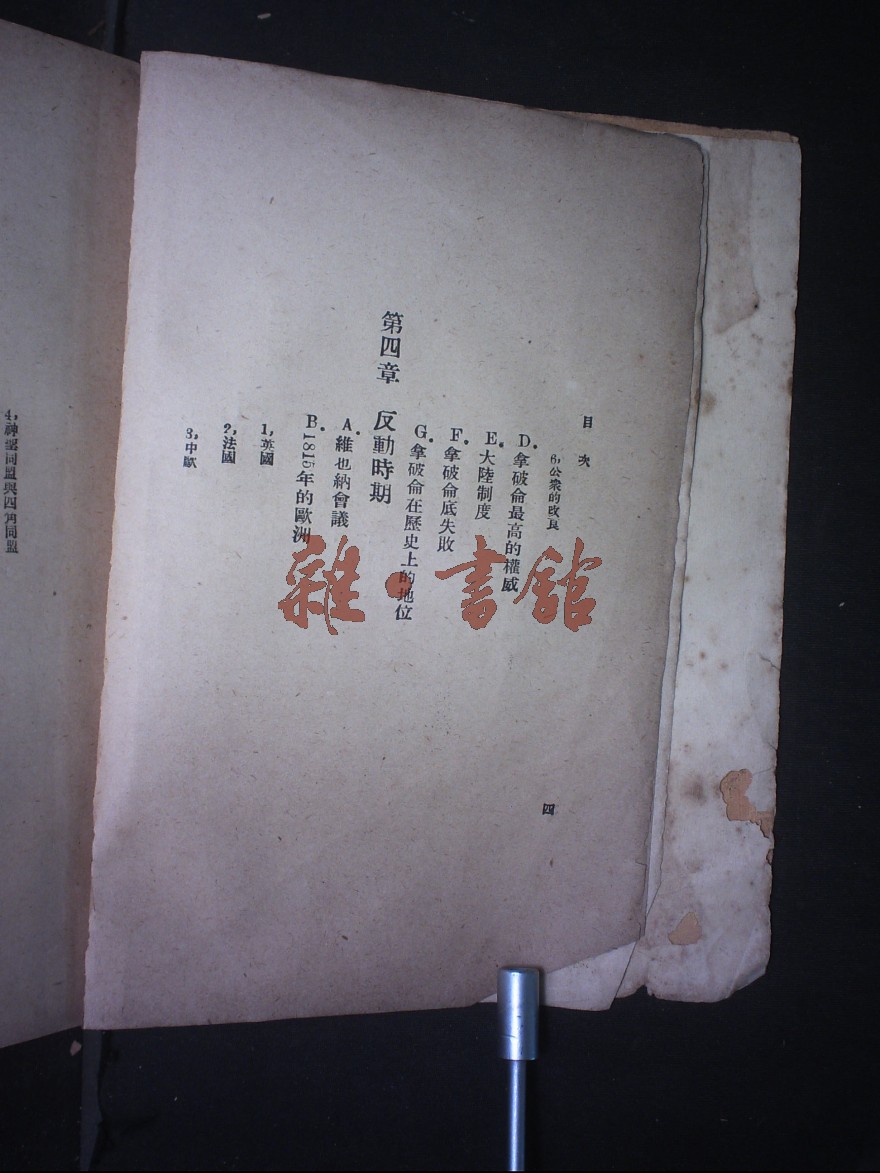 目次
6,公衆的改良
D.拿破侖最高的權威
E.大陸制度
F.拿破侖底失敗
G.拿破侖在歷史上的地位
第四章 反動時期
A.維也納會議
B.1815年的歐洲
1,英國
2,法國
3,中歐
四
4,神聖同盟與四角同盟
雜·書館